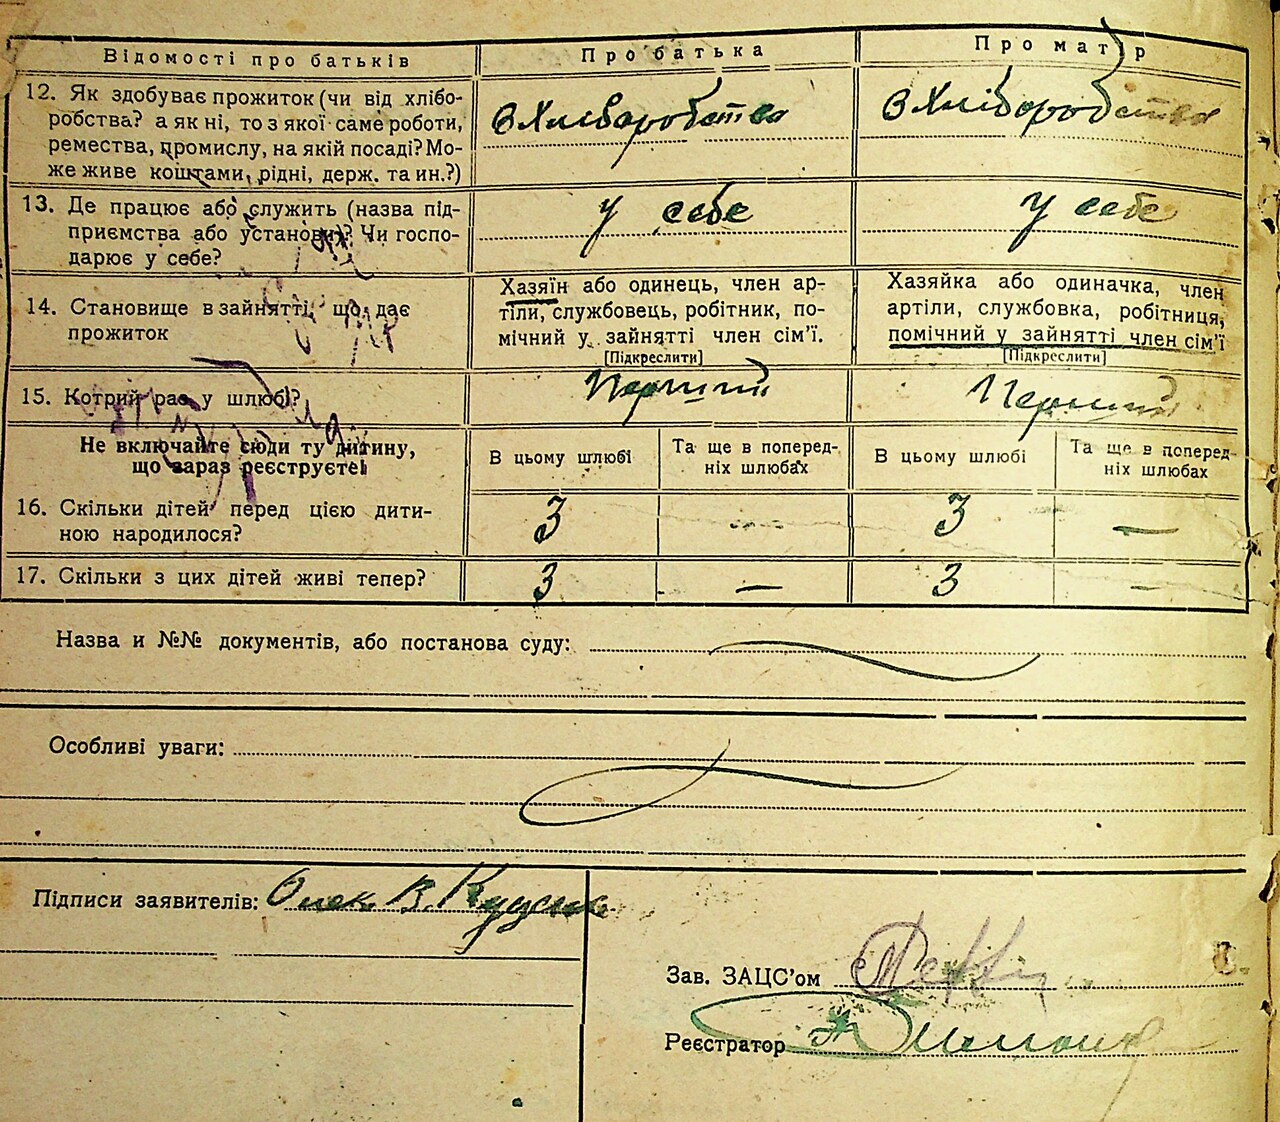 Відомості про батьків Про батька Про матір
12. Як здобуває прожиток (чи від хлібо-
робства? а як ні, то з якої саме роботи,
ремества, промислу, на якій посаді? Мо-
же живе коштами, рідні, держ. та ин.?)
З Хліборобства З Хліборобства
13. Де працює або служить (назва під-
приємства або установи)? Чи госпо-
дарює у себе?
у себе у себе
14. Становище в зайнятті, що дає
прожиток
Хазяїн або одинець, член ар-
тіли, службовець, робітник, по-
мічний у зайнятті член сім'ї.
[Підкреслити]
Хазяйка або одиначка, член
артіли, службовка, робітниця,
помічний у зайнятті член сім'ї
[Підкреслити]
15. Котрий раз у шлюбі? Перший Перший
Не включайте сюди ту дитину,
що зараз реєструєте!
В цьому шлюбі
Та ще в поперед-
ніх шлюбах
В цьому шлюбі
Та ще в поперед-
ніх шлюбах
16. Скільки дітей перед цією дити-
ною народилося?
3 — 3 —
17. Скільки з цих дітей живі тепер? 3 — 3 —
Назва и №№ документів, або постанова суду:
Особливі уваги:
Підписи заявителів: Олек. В.
Зав. ЗАЦС'ом
Реєстратор